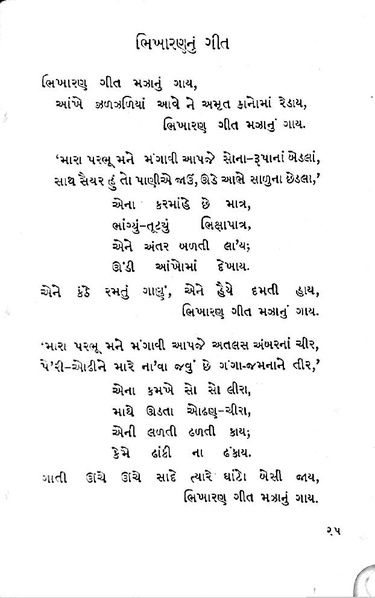 ભિખારણનું ગીત
ભિખારણ ગીત મઝાનું ગાય,
આંખે ઝળઝળિયાં આવે ને અમૃત કાનોમાં રેડાય,
ભિખારણ ગીત મઝાનું ગાય.
‘મારા પરભુ મને મંગાવી આપજે સોના-રૂપાનાં બેડલાં,
સાથ સૈયર હું તો પાણીએ જાઉં, ઊડે આભે સાળુના છેડલા,’
એના કરમાંહે છે માત્ર,
ભાંગ્યું-તૂટ્યું ભિક્ષાપાત્ર,
એને અંતર બળતી લા'ય;
ઊંડી આંખોમાં દેખાય.
એને કંઠે રમતું ગાણું, એને હૈયે દમતી હાય,
ભિખારણ ગીત મઝાનું ગાય.
‘મારા પરભુ મને મંગાવી આપજે અતલસ અંબરનાં ચીર,
પે'રી-ઓઢીને મારે ના'વા જવું છે ગંગા-જમનાને તીર,’
એના કમખે સો સો લીરા,
માથે ઊડતા ઓઢણ-ચીરા,
એની લળતી ઢળતી કાય;
કેમે ઢાંકી ના ઢંકાય.
ગાતી ઊંચે ઊંચે સાદે ત્યારે ઘાંટો બેસી જાય,
ભિખારણ ગીત મઝાનું ગાય.
૨૫